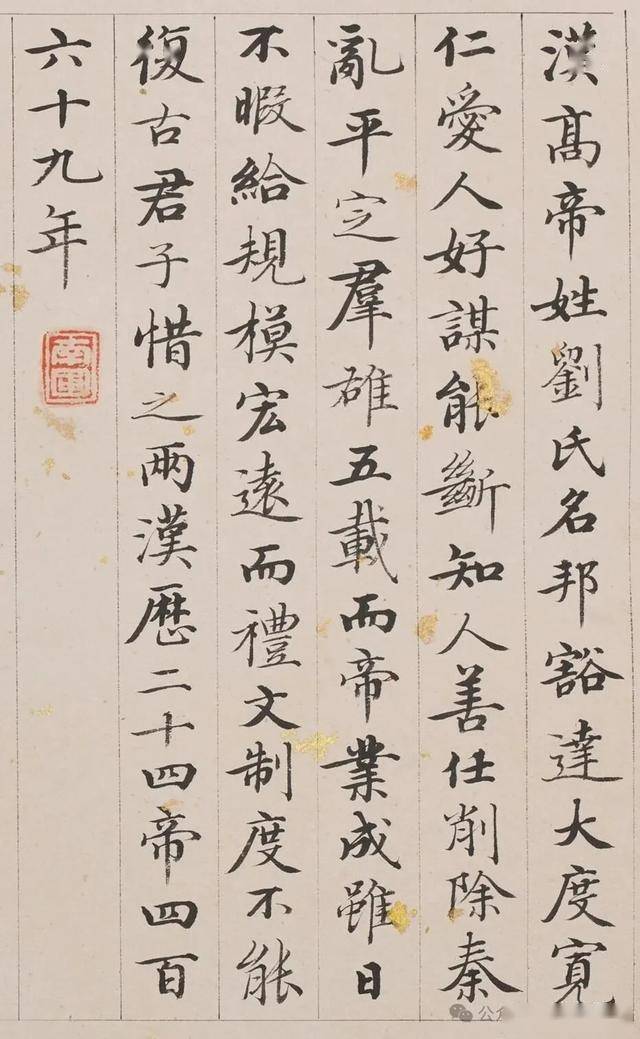 漢高帝姓劉氏名邦豁達大度寬
仁愛人好謀能斷知人善任削除秦
亂平定羣雄五載而帝業成雖日
不暇給規模宏遠而禮文制度不能
復古君子惜之兩漢歷二十四帝四百
六十九年